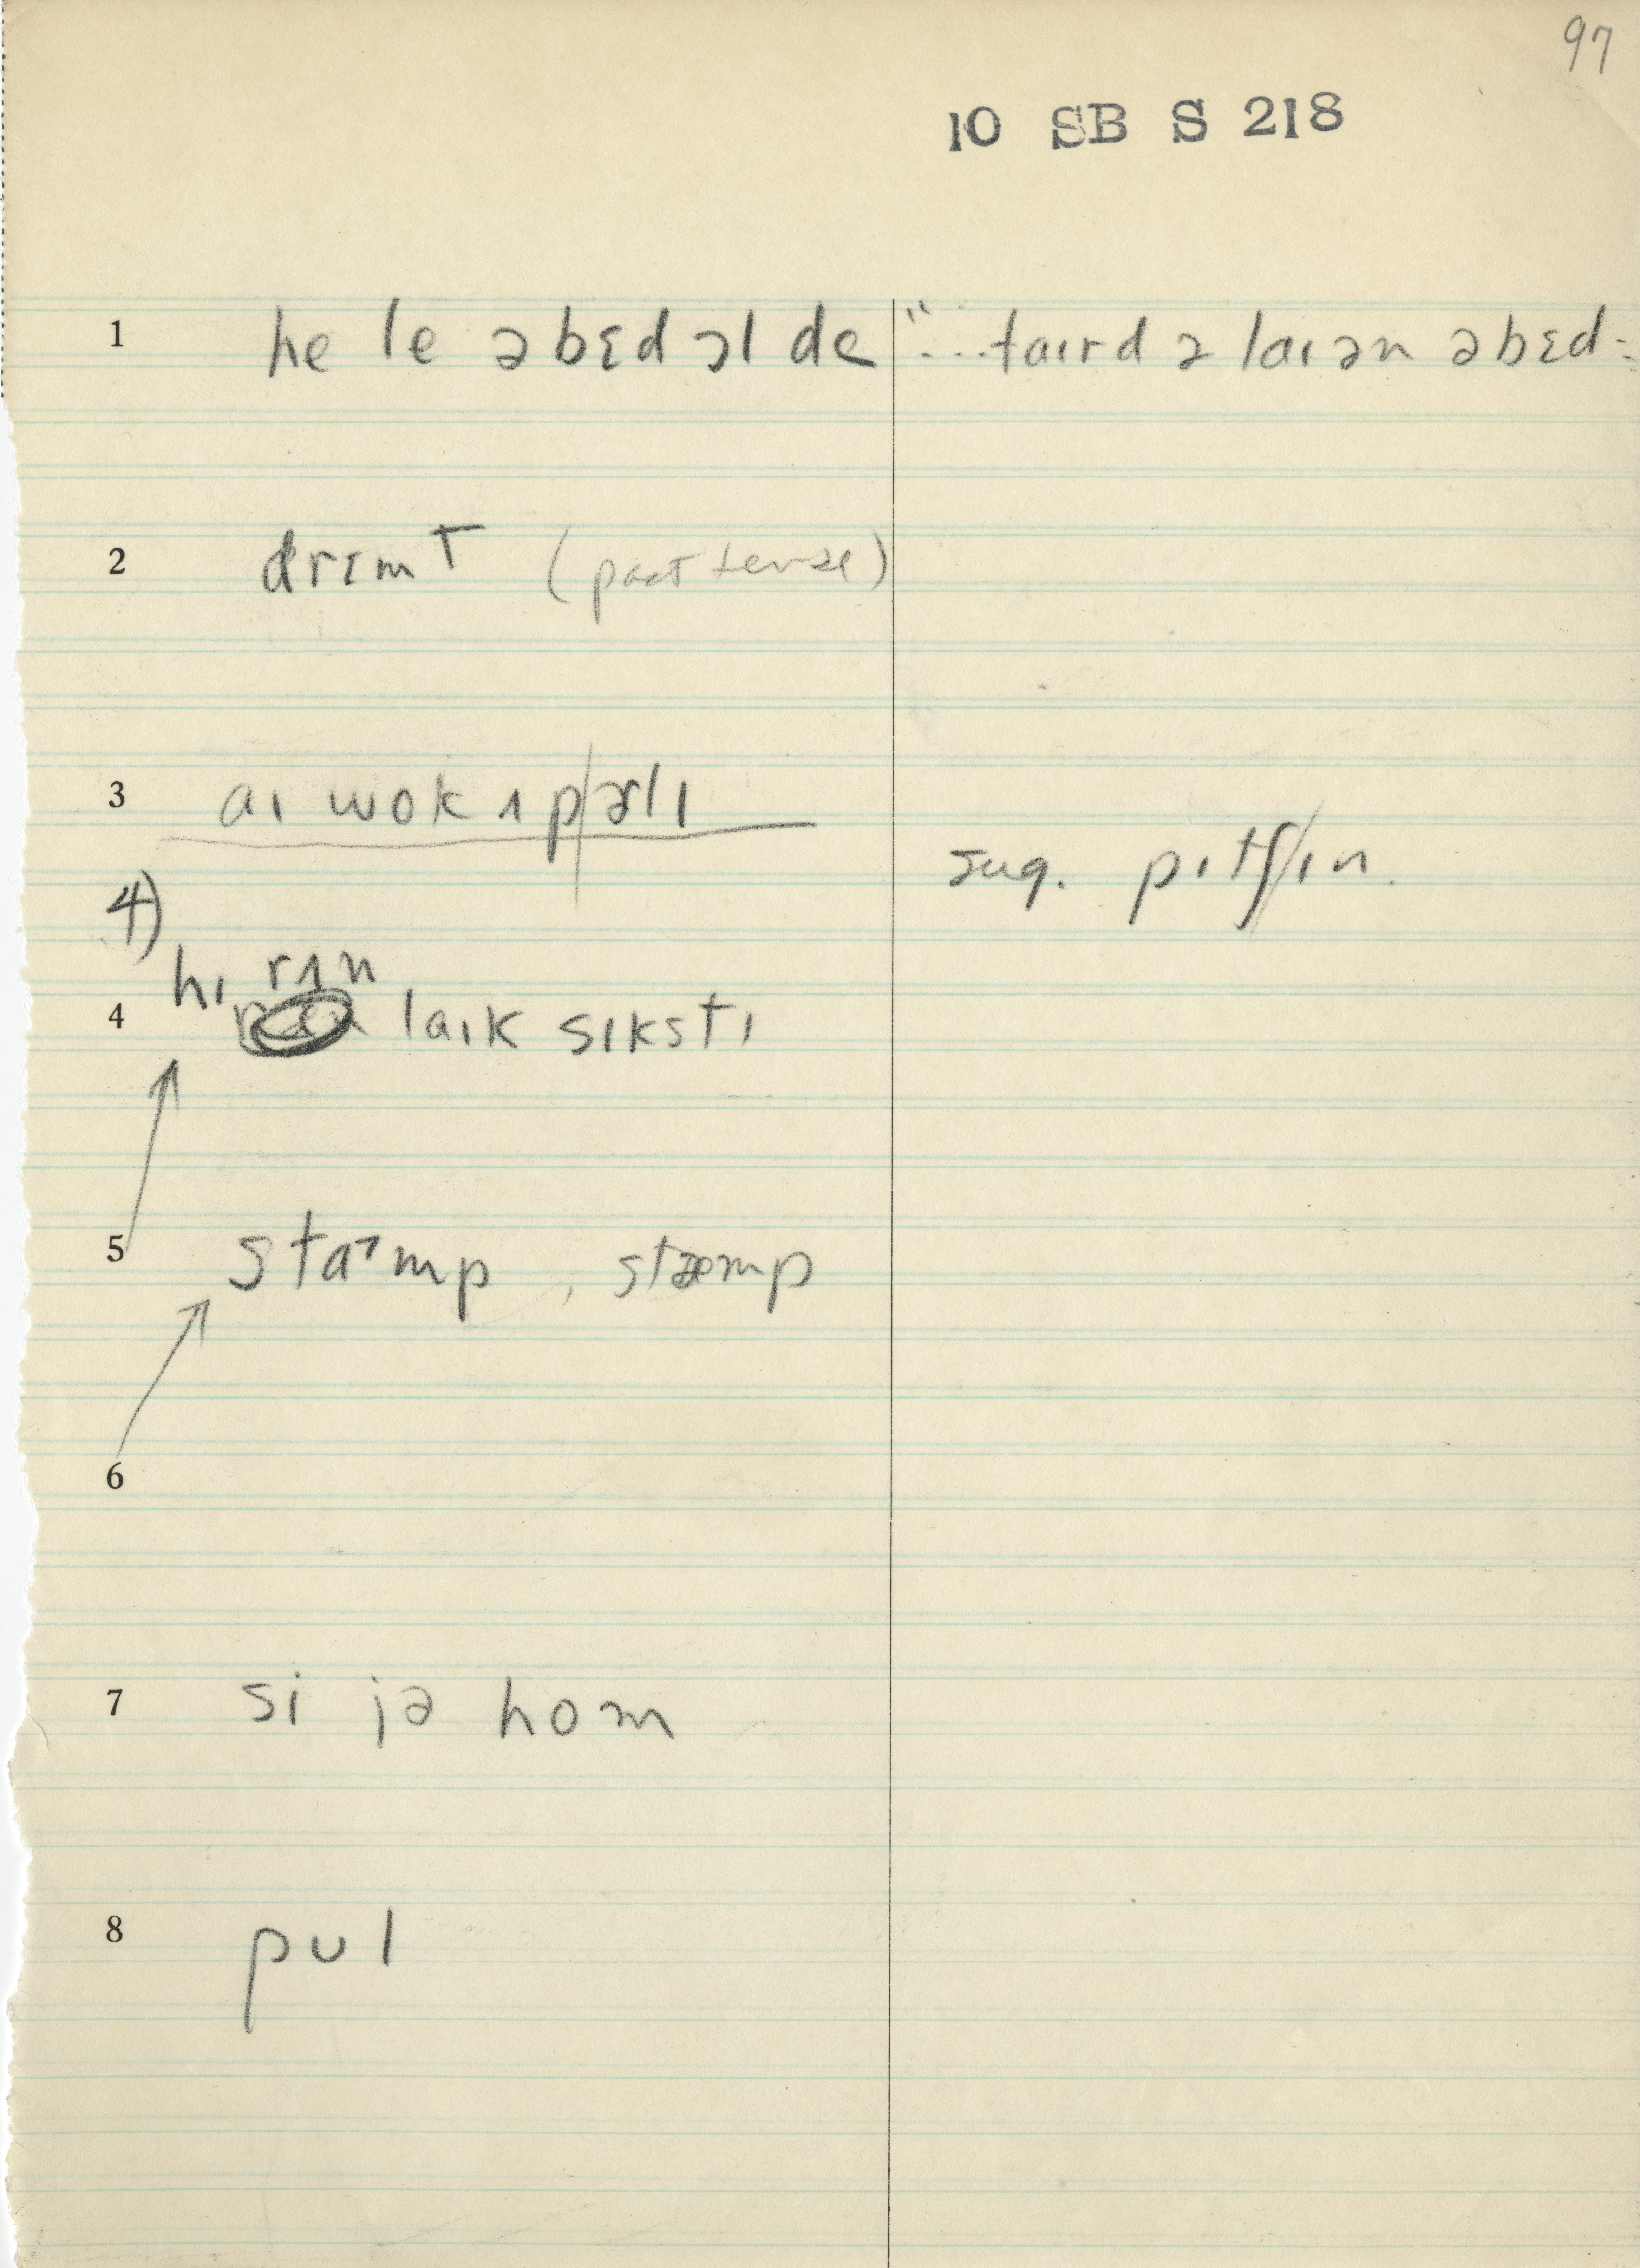 97
10 SB S 218
1 he le əbɛd ɔl de "...taɪrd ə laɪən əbɛd-
2 drɛmT (past tense)
3 aɪ wok ʌp|ɚlɪ
sug. pɪtʃ/ɪn.
4)
hɪ rʌn
4 laɪk sɪkstɪ
5 staᴵmp, stæmp
6
7 si jə hom
8 pʊl